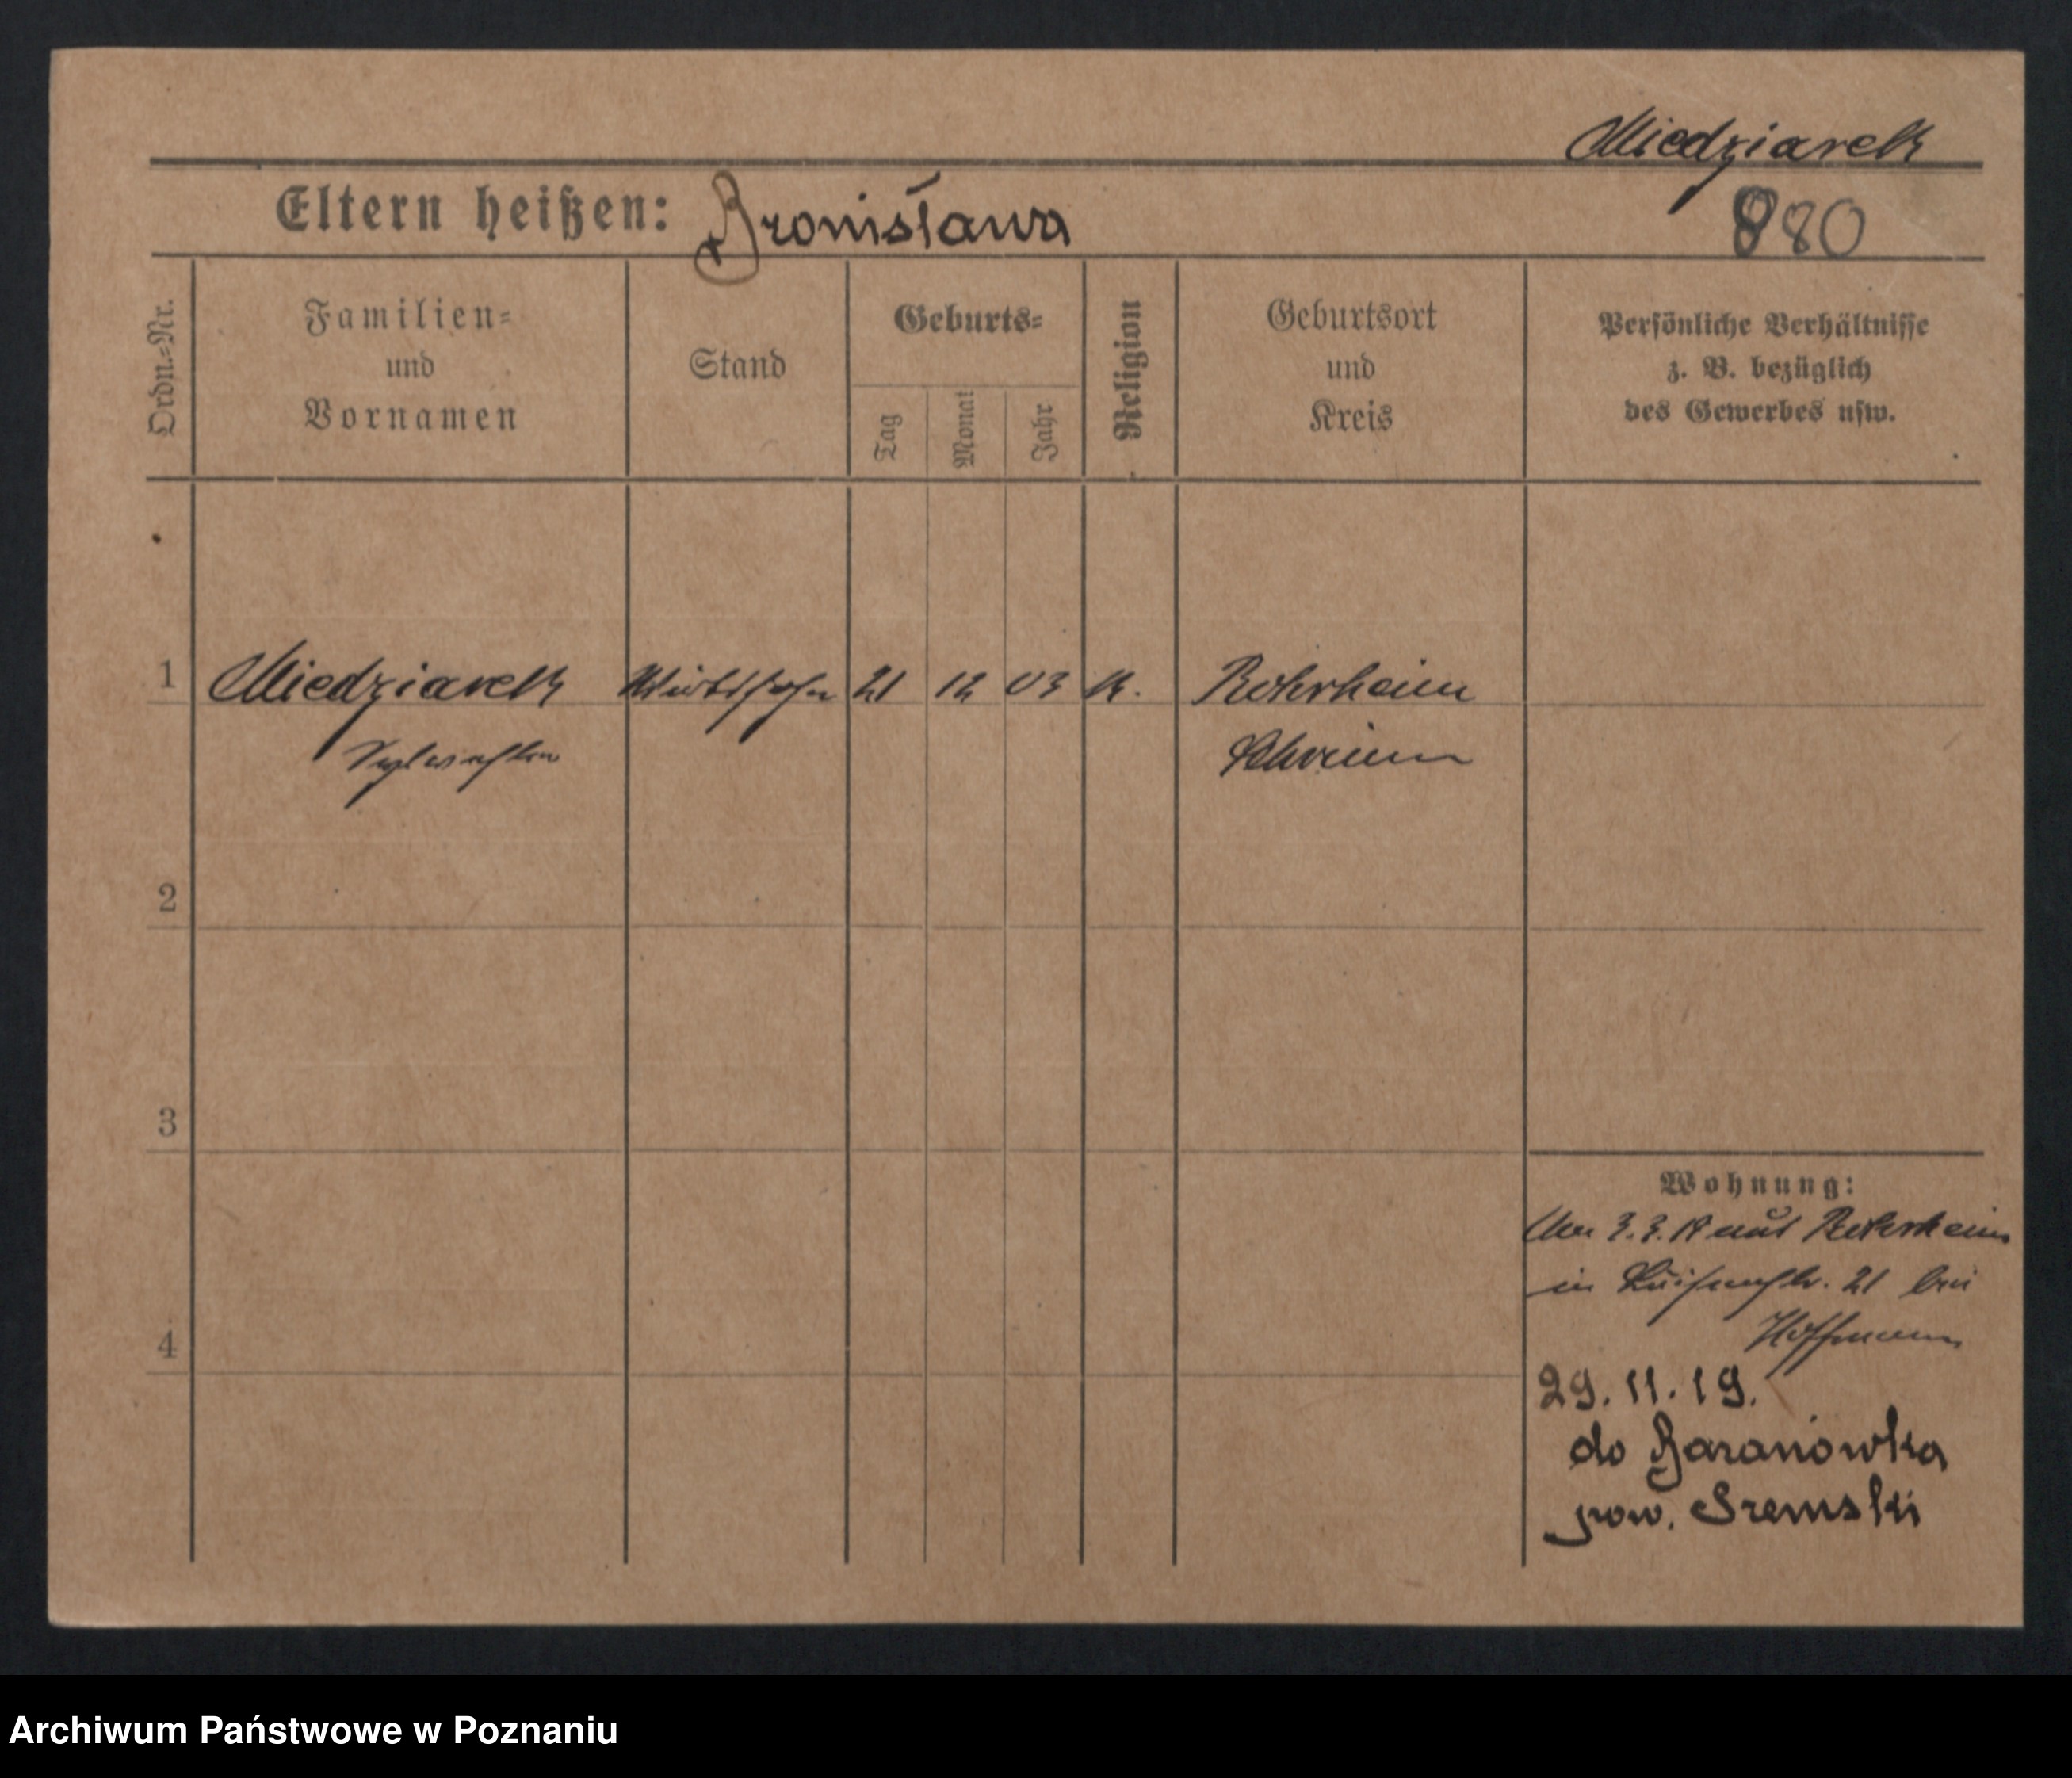 Miedziarek
Eltern heißen: Bronisława
880
Ordn.-Nr.
Familien-
und
Vornamen
Stand
Geburts-
Tag
Monat
Jahr
Religion
Geburtsort
und
Kreis
Persönliche Verhältnisse
z. B. bezüglich
des Gewerbes usw.
1 Miedziarek Wirtssohn 21 12 03 K. Rohrheim
Schrimm
2
3
4
Wohnung:
3.3.19 aus Rohrheim
in Luisenstr. 21 bei
Hoffmann
29.11.19.
do Baranówka
pow. Sremski
Archiwum Państwowe w Poznaniu